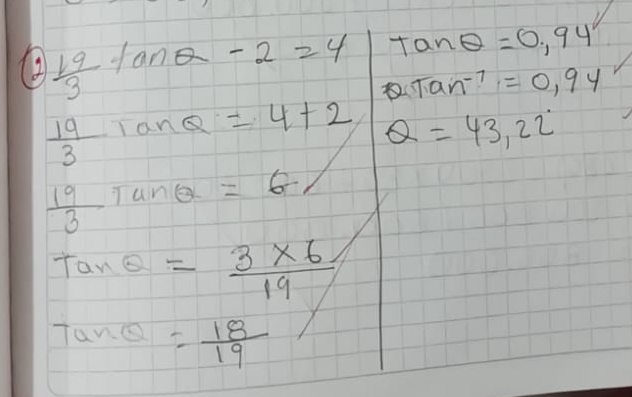 ② 19/3 tanθ - 2 = 4
19/3 Tanθ = 4 + 2
19/3 Tanθ = 6
Tanθ = 3 × 6 / 19
Tanθ = 18/19
Tanθ = 0,94
θ Tan⁻¹ = 0,94
θ = 43,22